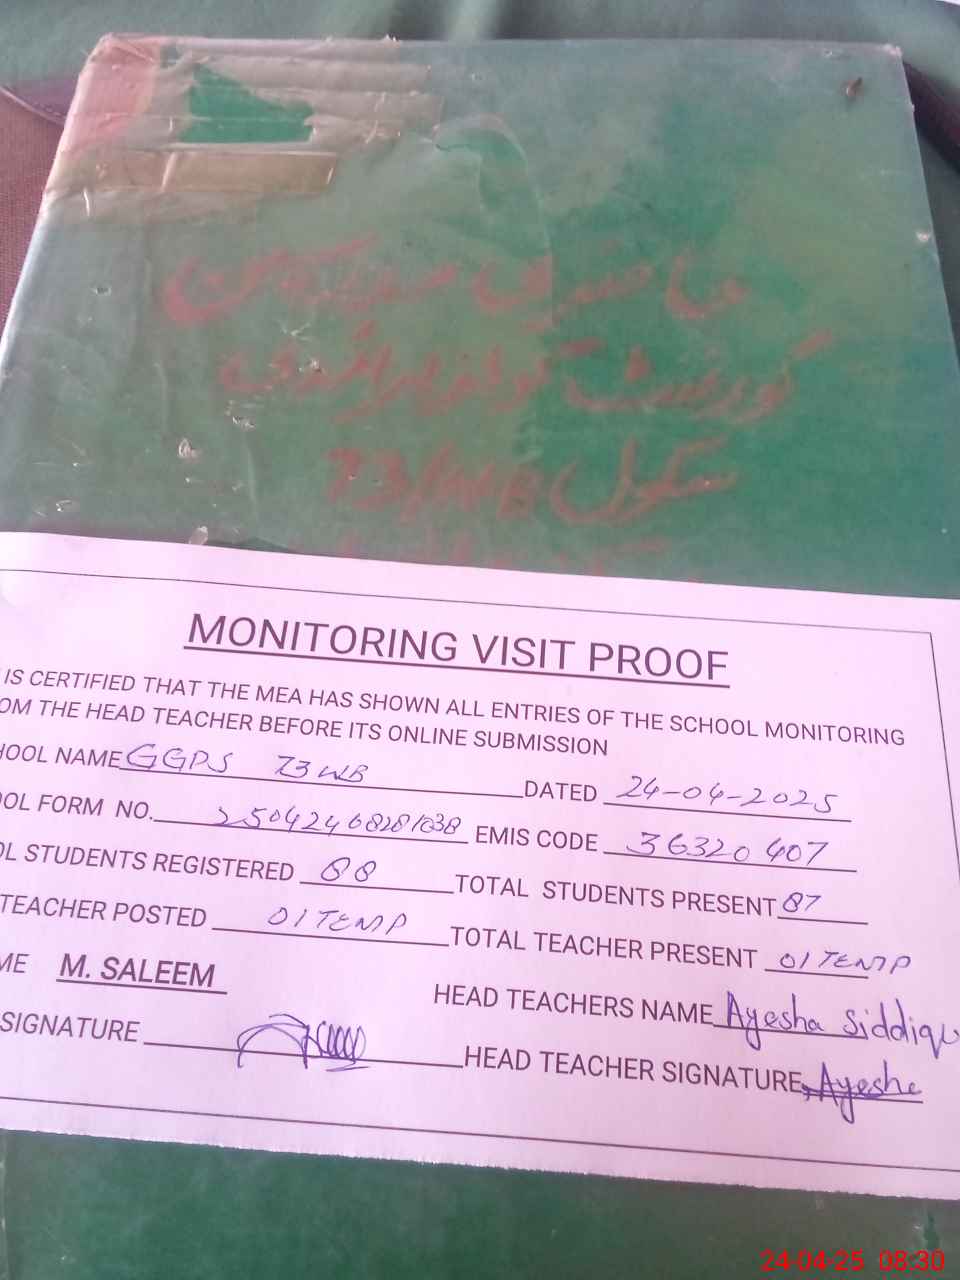 حاضری مدرسین
گورنمنٹ گرلز پرائمری
سکول 73/WB
MONITORING VISIT PROOF
IS CERTIFIED THAT THE MEA HAS SHOWN ALL ENTRIES OF THE SCHOOL MONITORING
OM THE HEAD TEACHER BEFORE ITS ONLINE SUBMISSION
HOOL NAME GGPS 73WB DATED 24-04-2025
OOL FORM NO. EMIS CODE 36320407
OL STUDENTS REGISTERED 88 TOTAL STUDENTS PRESENT 87
TEACHER POSTED 01 TEMP TOTAL TEACHER PRESENT 01 TEMP
ME M. SALEEM HEAD TEACHERS NAME Ayesha Siddiqu
SIGNATURE HEAD TEACHER SIGNATURE Ayesha
24-04-25 08:30